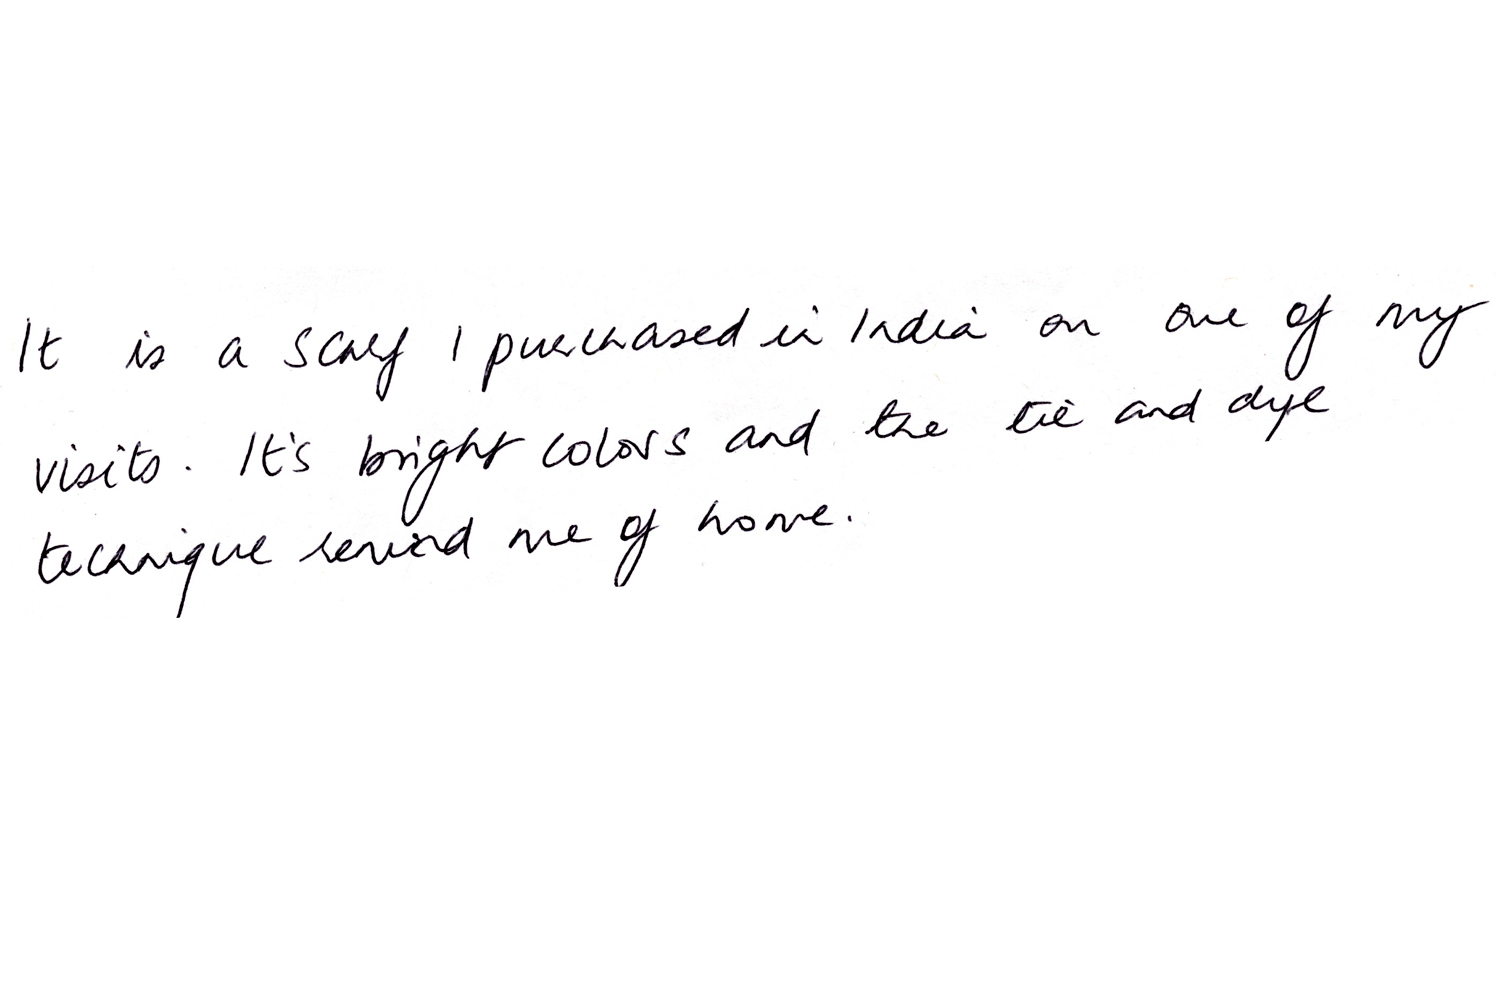 It is a scarf I purchased in India on one of my
visits. It's bright colors and the tie and dye
technique remind me of home.